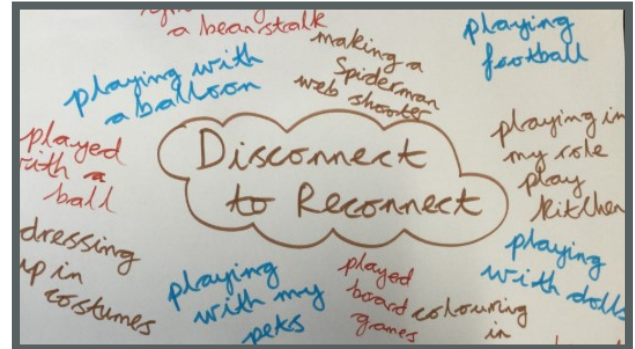 a beanstalk
making a
Spiderman
web shooter
playing
football
playing with
a balloon
played
with a
ball
Disconnect
to Reconnect
playing in
my role
play
kitchen
dressing
up in
costumes
playing
with my
pets
played
board
games
colouring
in
playing
with dolls